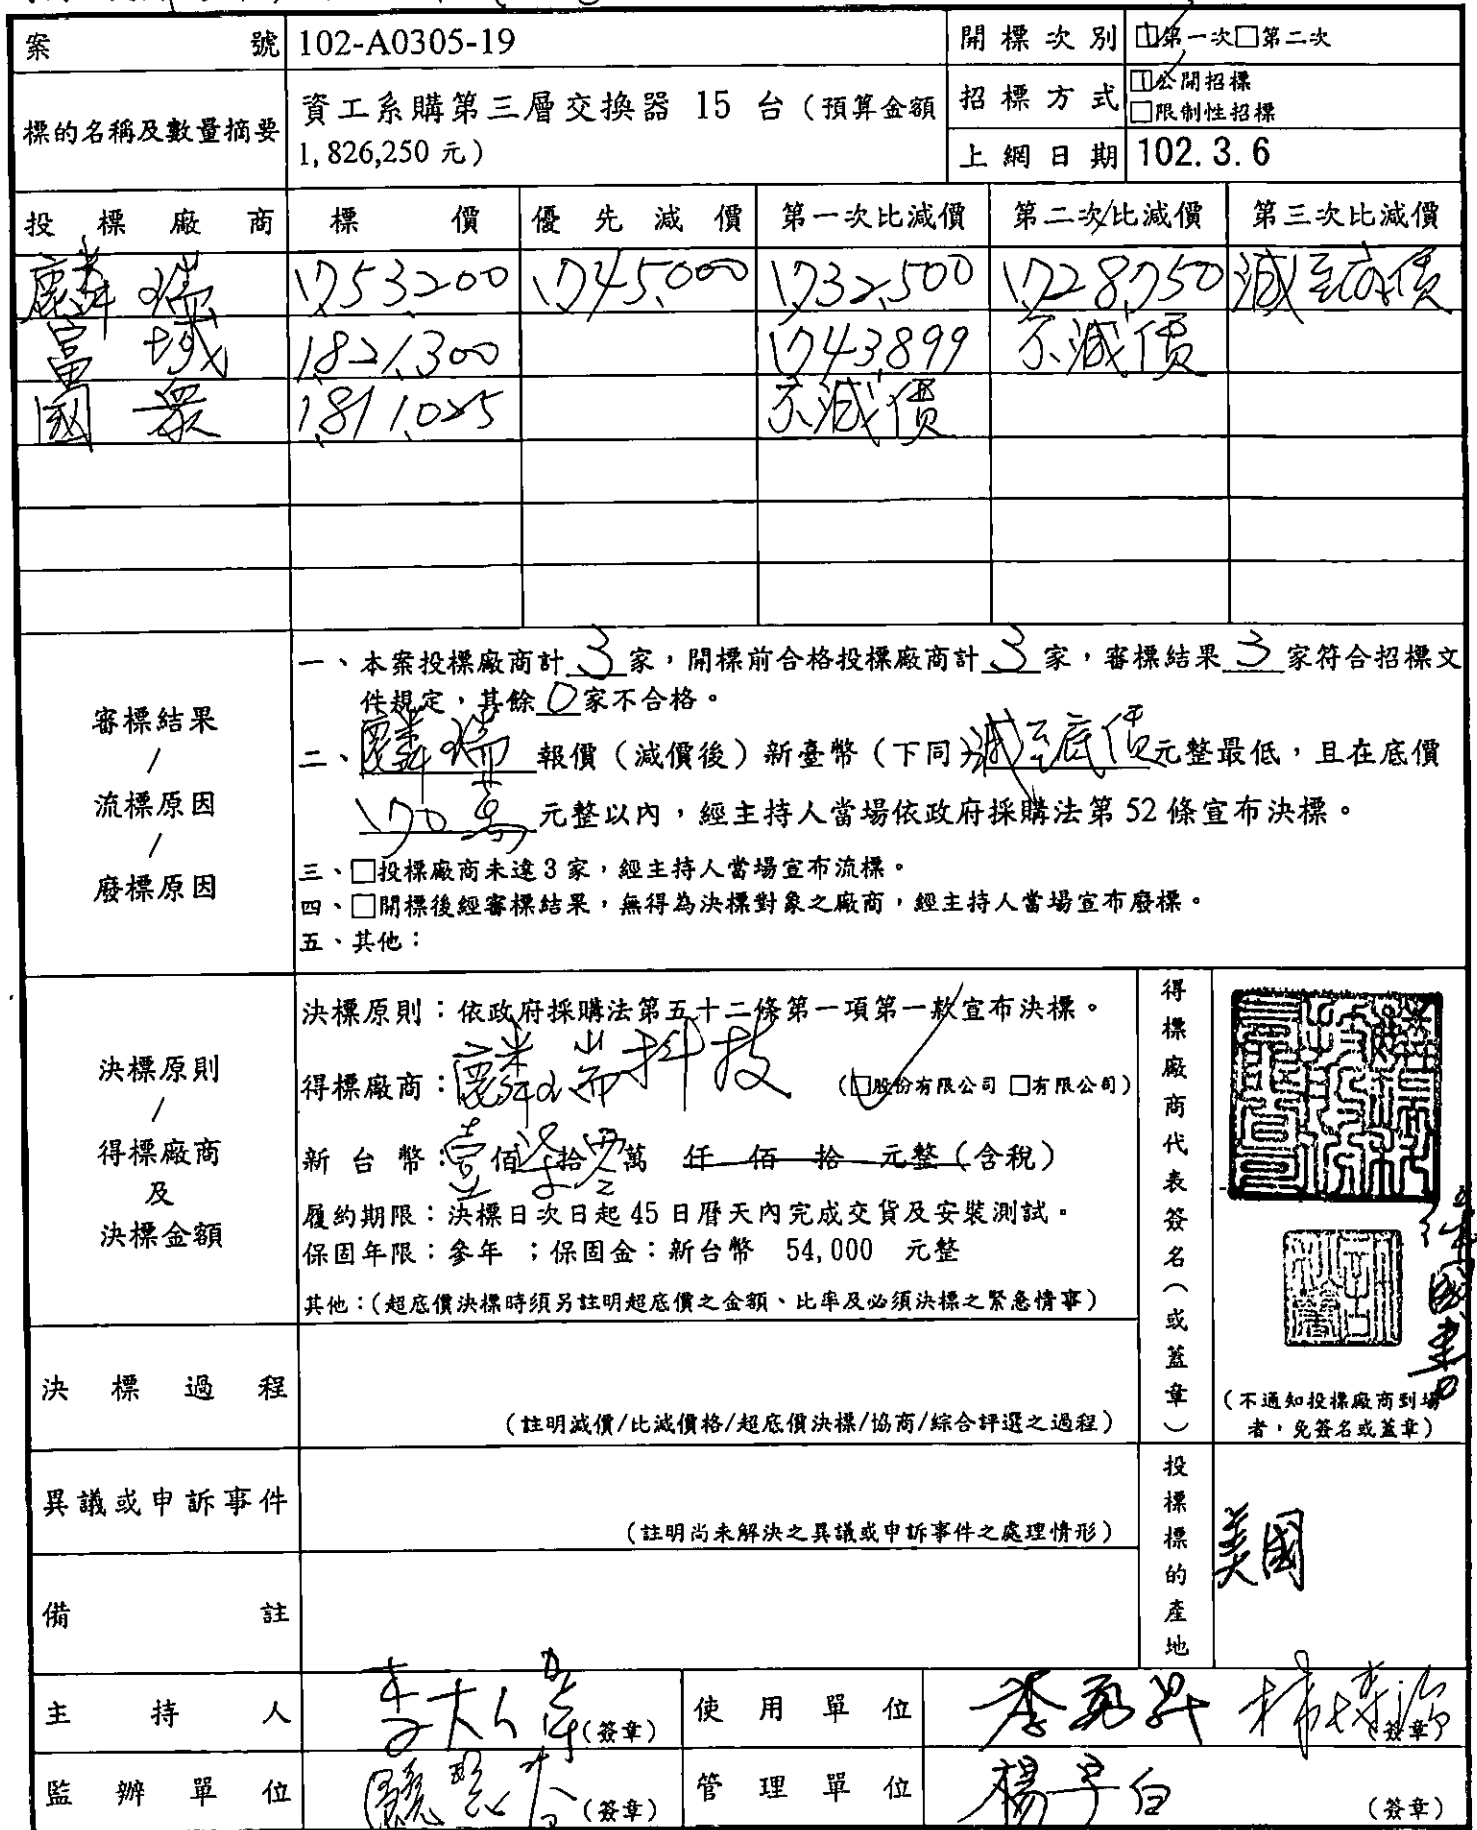 案號 102-A0305-19 開標次別 □第一次□第二次
標的名稱及數量摘要 資工系購第三層交換器 15 台(預算金額
1,826,250 元)
招標方式 □公開招標
□限制性招標
上網日期 102.3.6
投標廠商 標價 優先減價 第一次比減價 第二次比減價 第三次比減價
麟瑞 1,753,200 1,745,000 1,732,500 1,728,750 減至底價
富域 1,821,300 1,743,899 不減價
國眾 1,811,025 不減價
審標結果
/
流標原因
/
廢標原因
一、本案投標廠商計 3 家,開標前合格投標廠商計 3 家,審標結果 3 家符合招標文
件規定,其餘 0 家不合格。
二、麟瑞 報價(減價後)新臺幣(下同)減至底價元整最低,且在底價
170萬 元整以內,經主持人當場依政府採購法第 52 條宣布決標。
三、□投標廠商未達 3 家,經主持人當場宣布流標。
四、□開標後經審標結果,無得為決標對象之廠商,經主持人當場宣布廢標。
五、其他:
決標原則
/
得標廠商
及
決標金額
決標原則:依政府採購法第五十二條第一項第一款宣布決標。
得標廠商:麟瑞科技 (□股份有限公司 □有限公司)
新台幣:壹佰柒拾零萬 仟 佰 拾 元整(含稅)
履約期限:決標日次日起 45 日曆天內完成交貨及安裝測試。
保固年限:參年 ;保固金:新台幣 54,000 元整
其他:(超底價決標時須另註明超底價之金額、比率及必須決標之緊急情事)
得標廠商代表簽名(或蓋章)
(不通知投標廠商到場
者,免簽名或蓋章)
決標過程
(註明減價/比減價格/超底價決標/協商/綜合評選之過程)
異議或申訴事件
(註明尚未解決之異議或申訴事件之處理情形)
備註
投標標的產地
美國
主持人 (簽章) 使用單位 (簽章)
監辦單位 (簽章) 管理單位 (簽章)